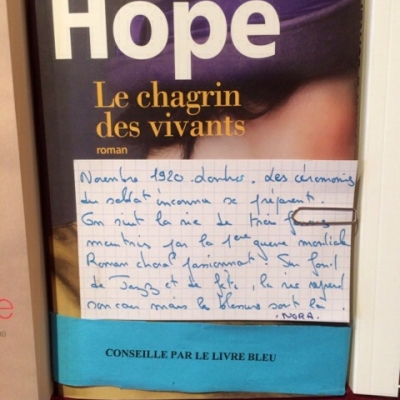 Hope
Le chagrin
des vivants
roman
Novembre 1920 Londres. Les cérémonies
du soldat inconnu se préparent.
On suit la vie de trois femmes
meurtries par la 1ère guerre mondiale
Roman choral passionnant. Sur fond
de Jazz et de fête, la vie reprend
son cours mais les blessures sont là.
NORA.
CONSEILLE PAR LE LIVRE BLEU
e